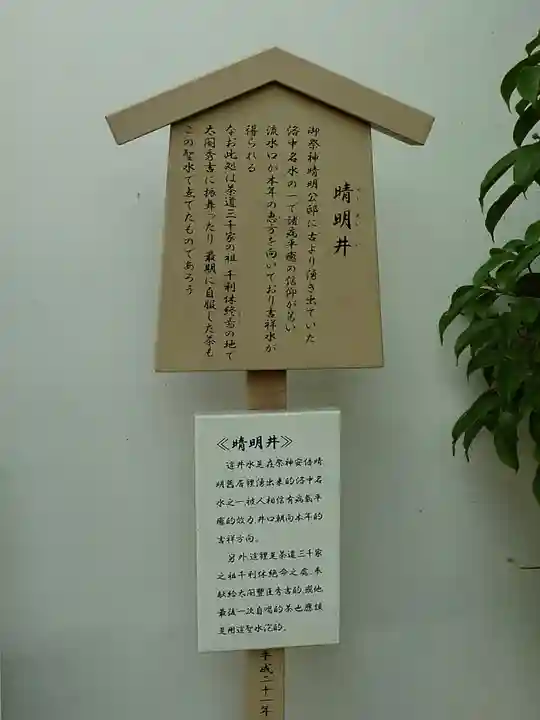 晴明井
せいめいい
御祭神晴明公邸に古より湧き出ていた
洛中名水の一で諸病平癒の信仰が篤い
流水口が本年の恵方を向いており吉祥水が
得られる
なお此処は茶道三千家の祖 千利休終焉の地で
太閤秀吉に振舞ったり最期に自服した茶も
この聖水で点てたものであろう
≪晴明井≫
這井水是在祭神安倍晴
明舊居裡湧出來的洛中名
水之一,被人相信有病氣平
癒的效力,井口朝向本年的
吉祥方向。
另外,這裡是茶道三千家
之祖千利休絶命之處、奉
獻給太閤豐臣秀吉的、或他
最後一次自喝的茶也應該
是用這聖水沱的。
平成二十一年